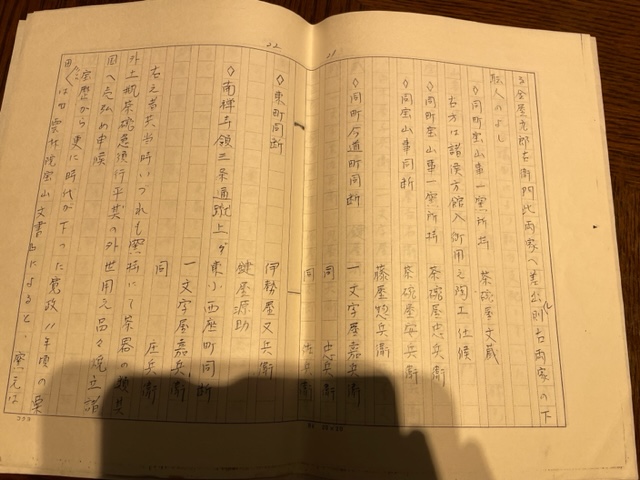 金屋九郎右衛門此両家へ差出し則右両家の下
職人のよし
◇同町宝山事一窯所持 茶碗屋文蔵
右方は諸侯方館入御用之陶工仕候
◇同町宝山事一窯所持 茶碗屋忠兵衛
◇同宝山事同断 茶碗屋安兵衛
藤屋惣兵衛
◇同町今道町同断 一文字屋嘉兵衛
同 忠兵衛
同 佐兵衛
◇東町同断 伊勢屋又兵衛
鍵屋源助
◇南禅寺領三条通蹴上ゲ東小西座町同断
一文字屋嘉兵衛
同 庄兵衛
右之者共当時いつれも窯持にて茶器の類其
外土瓶茶碗急須行平其の外世用之品々焼立諸
国へ売弘め申候
宝暦から更に時代が下った寛政八年頃の粟
田は 雲林院宝山文書によると、窯元は